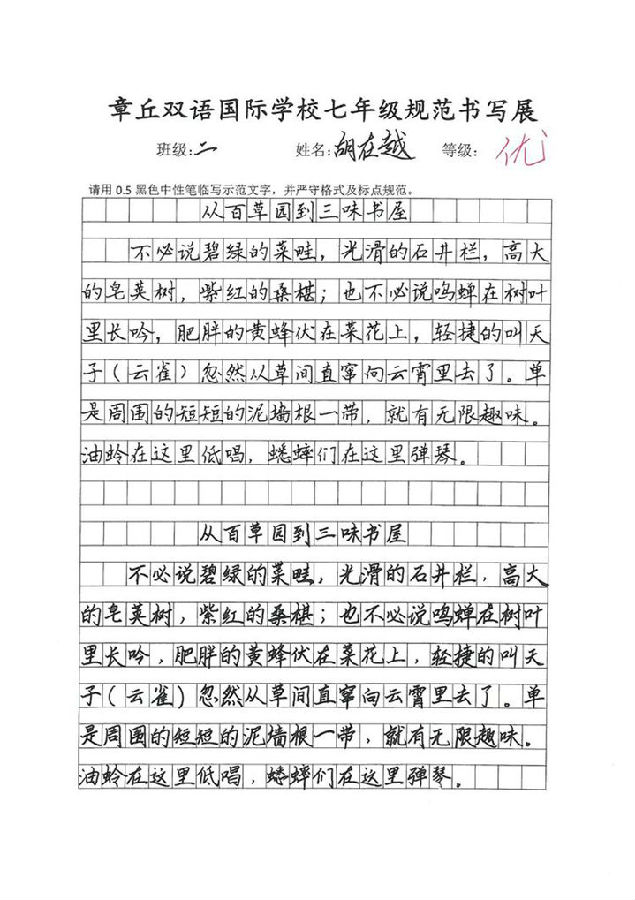 章丘双语国际学校七年级规范书写展
班级:二 姓名:胡在越 等级:优
请用 0.5 黑色中性笔临写示范文字，并严守格式及标点规范。
从百草园到三味书屋
不必说碧绿的菜畦，光滑的石井栏，高大
的皂荚树，紫红的桑椹；也不必说鸣蝉在树叶
里长吟，肥胖的黄蜂伏在菜花上，轻捷的叫天
子（云雀）忽然从草间直窜向云霄里去了。单
是周围的短短的泥墙根一带，就有无限趣味。
油蛉在这里低唱，蟋蟀们在这里弹琴。
从百草园到三味书屋
不必说碧绿的菜畦，光滑的石井栏，高大
的皂荚树，紫红的桑椹；也不必说鸣蝉在树叶
里长吟，肥胖的黄蜂伏在菜花上，轻捷的叫天
子（云雀）忽然从草间直窜向云霄里去了。单
是周围的短短的泥墙根一带，就有无限趣味。
油蛉在这里低唱，蟋蟀们在这里弹琴。